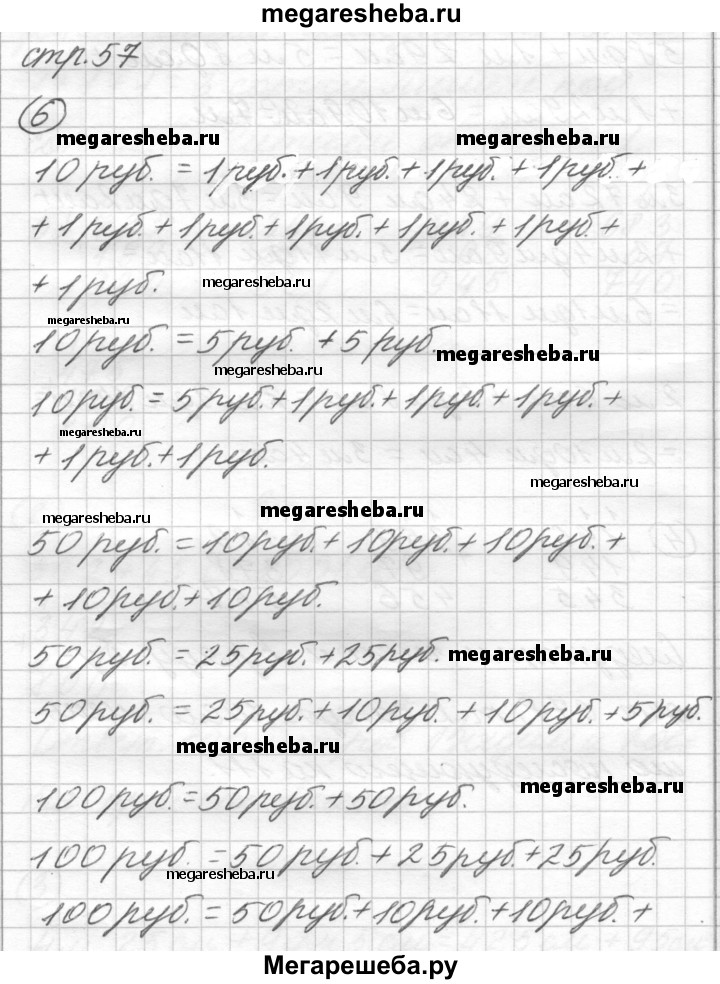 megaresheba.ru
стр. 57
6
megaresheba.ru megaresheba.ru
10 руб. = 1 руб. + 1 руб. + 1 руб. + 1 руб. +
+ 1 руб. + 1 руб. + 1 руб. + 1 руб. + 1 руб. +
+ 1 руб. megaresheba.ru
megaresheba.ru
10 руб. = 5 руб. + 5 руб. megaresheba.ru
megaresheba.ru
10 руб. = 5 руб. + 1 руб. + 1 руб. + 1 руб. +
megaresheba.ru
+ 1 руб. + 1 руб.
megaresheba.ru
megaresheba.ru megaresheba.ru
50 руб. = 10 руб. + 10 руб. + 10 руб. +
+ 10 руб. + 10 руб.
50 руб. = 25 руб. + 25 руб. megaresheba.ru
50 руб. = 25 руб. + 10 руб. + 10 руб. + 5 руб.
megaresheba.ru
megaresheba.ru
100 руб. = 50 руб. + 50 руб.
100 руб. = 50 руб. + 25 руб. + 25 руб.
megaresheba.ru
100 руб. = 50 руб. + 10 руб. + 10 руб. +
Мегарешеба.ру